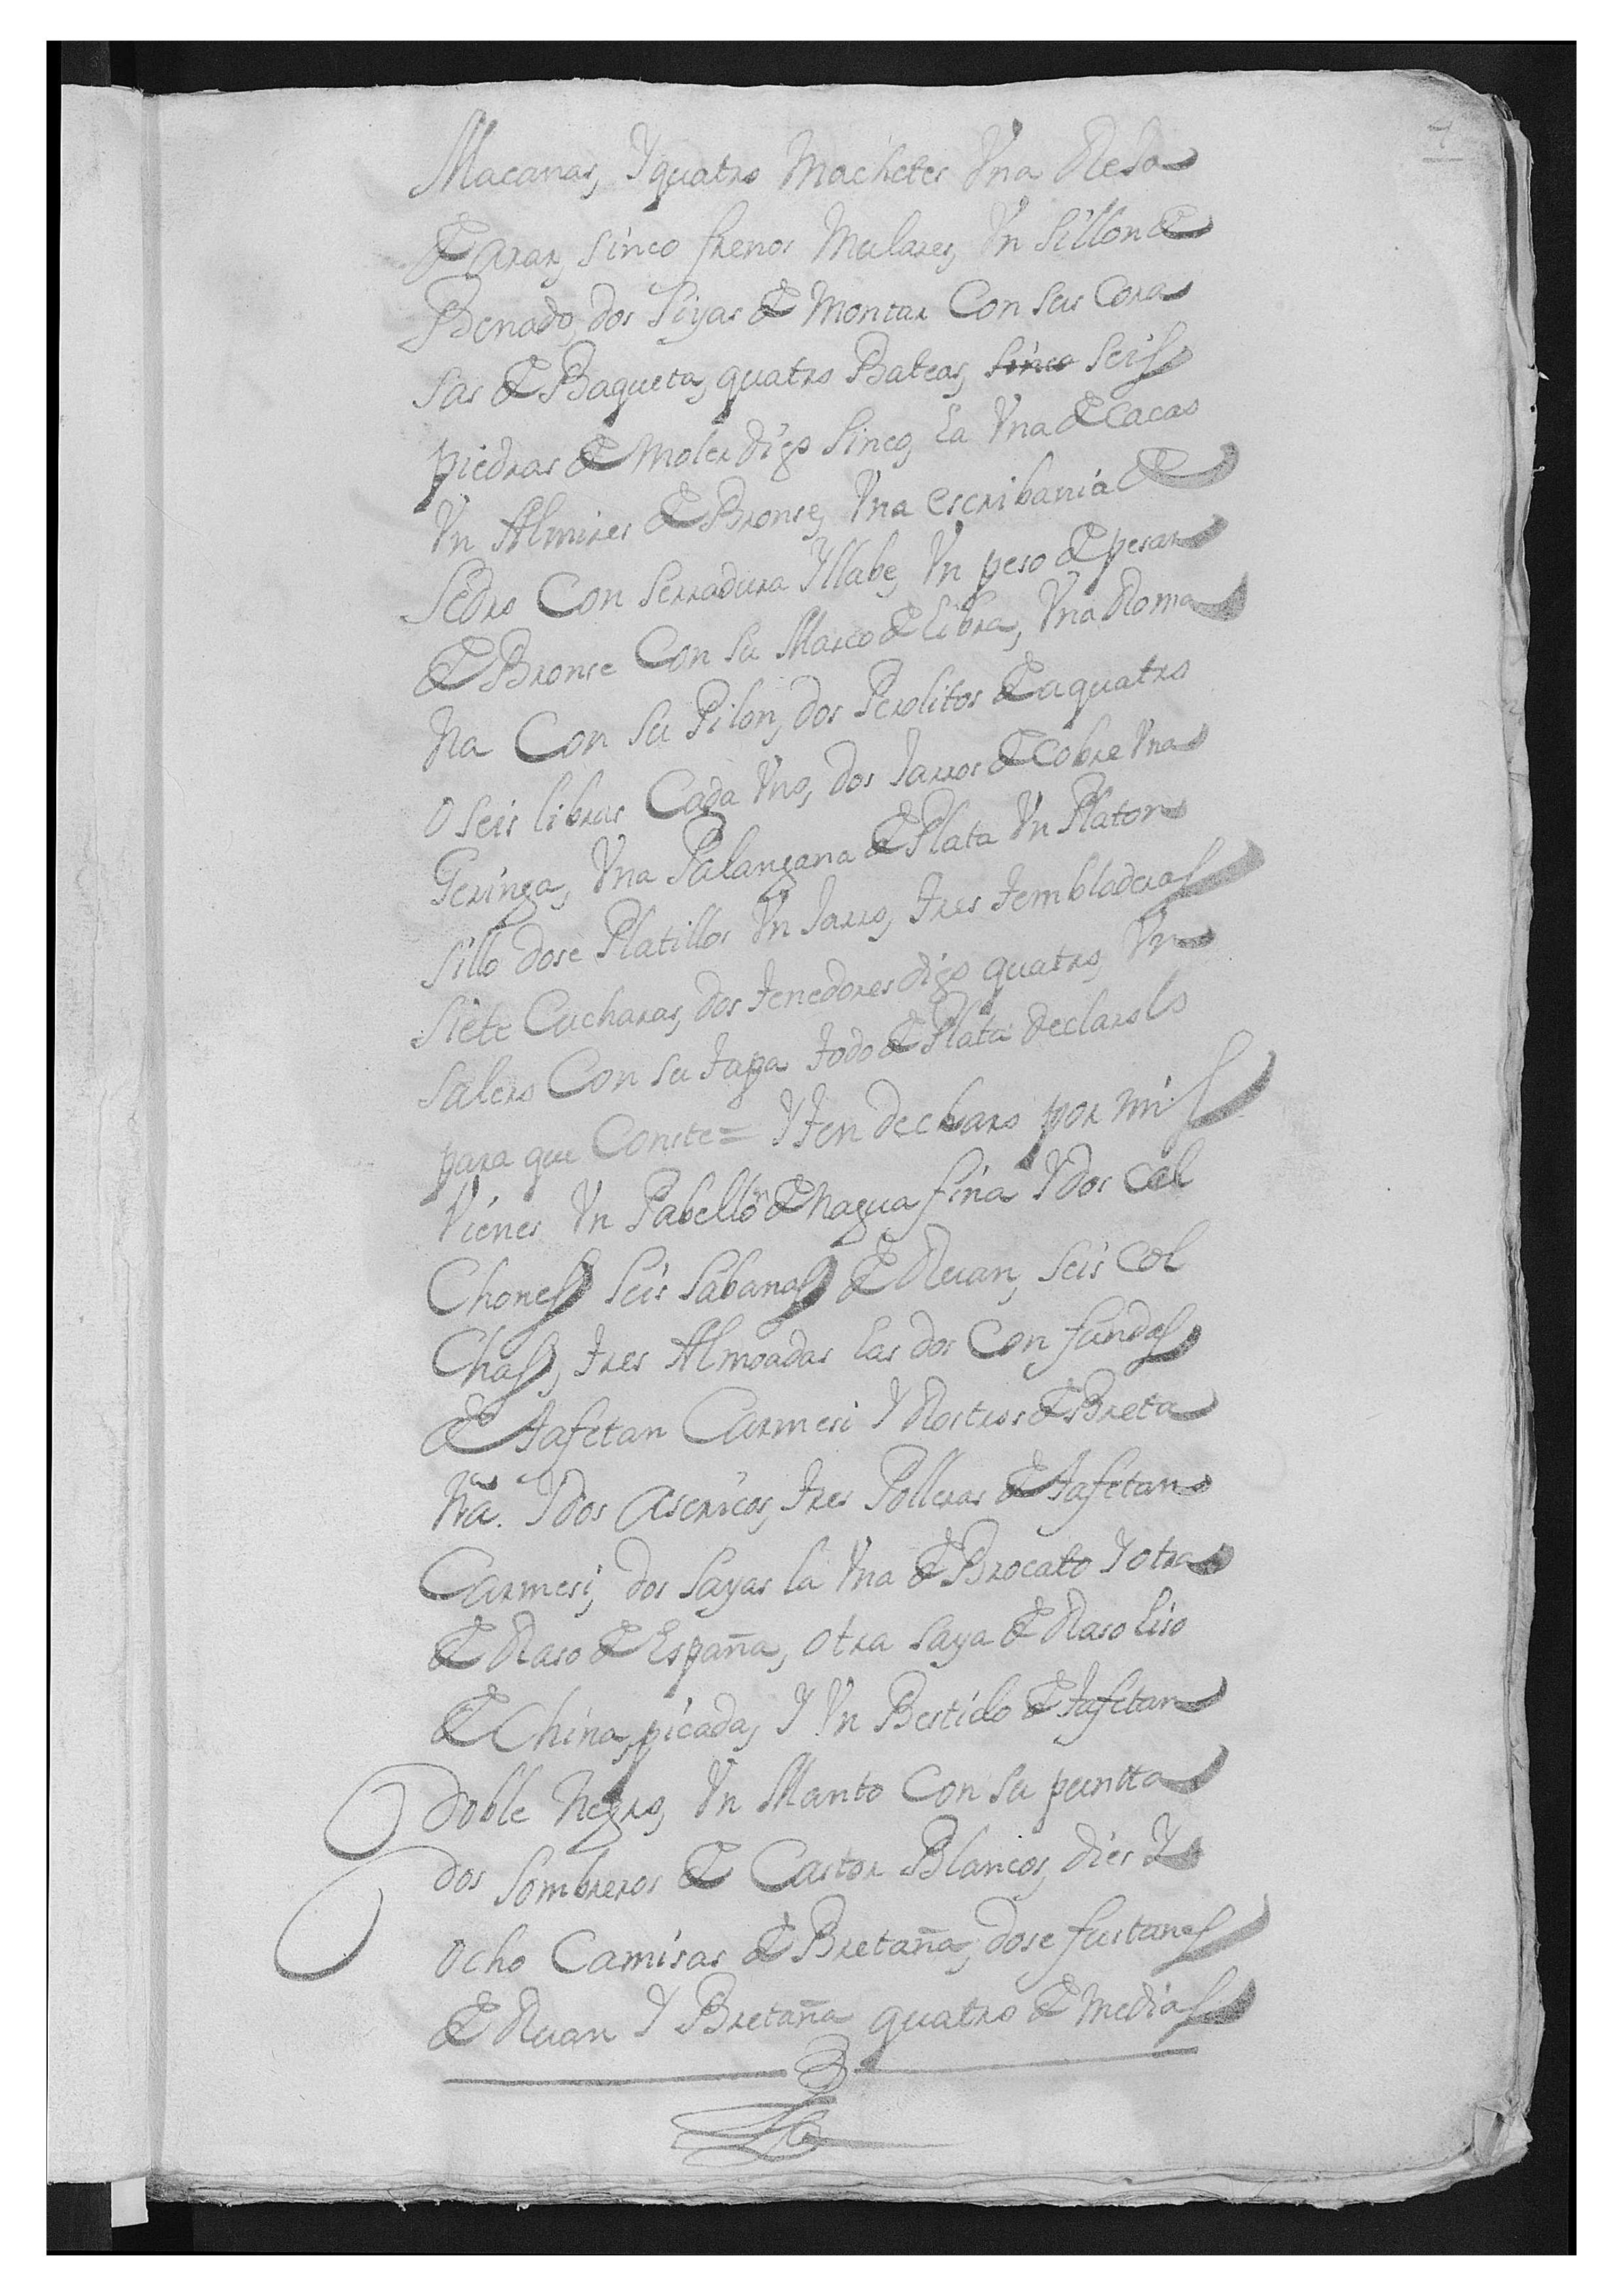 4
Macanas, Y quatro Machetes Vna Reja
de Arar, sinco frenos Mulares, Vn Sillon de
Benado, dos Siyas de Montar Con sus Cora
sas de Baqueta, quatro Bateas, sinco seis
piedras de Moler digo sinco, la Vna de Cacao
Vn Almires de Bronse, Vna escribania de
Sedro Con Serradura Y llabe, Vn peso de pesar
de Bronse Con su Marco de libra, Vna Roma
na Con su Pilon, dos Perolitos de a quatro
o seis libras Cada Vno, dos Jarros de Cobre Vna
Geringa, Vna Palangana de Plata Vn Platon
sillo dose Platillos Vn Jarro, tres tembladeras
siete Cucharas, dos tenedores digo quatro, Vn
salero Con su tapa todo de Plata declarolo
para que Conste = Yten declaro por mis
Vienes Vn Pabellon de nagua fina Y dos Col
Chones seis sabanas de Ruan, seis Col
Chas, tres Almoadas las dos Con fundas
de tafetan Carmesi Y Rostros de Breta
ña. Y dos Asericos, tres Polleras de tafetan
Carmesi, dos sayas la Vna de Brocato Y otra
de Raso de España, otra saya de Raso liso
de China, picada, Y Vn Bestido de tafetan
doble Negro, Vn Manto Con su puntta
dos Sombreros de Castor Blancos, dies Y
ocho Camisas de Bretaña, dose fustanes
de Ruan Y Bretaña quatro de Medias